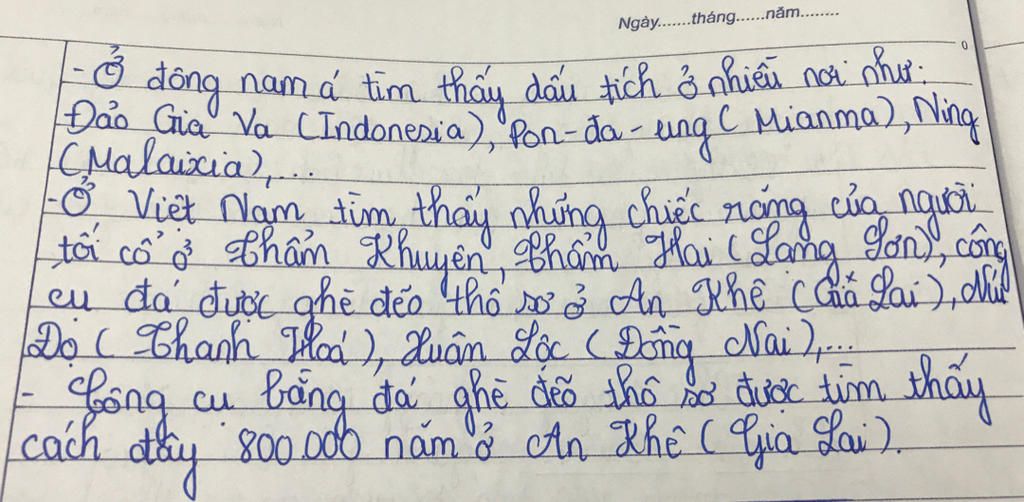 Ngày.......tháng......năm........
- Ở đông nam á tìm thấy dấu tích ở nhiều nơi như:
Đảo Gia Va (Indonexia), Pon-đa-ung (Mianma), Ning
(Malaixia),...
- Ở Việt Nam tìm thấy những chiếc răng của người
tối cổ ở Thẩm Khuyên, Thẩm Hai (Lạng Sơn), công
cụ đá được ghè đẽo thô sơ ở An Khê (Gia Lai), Núi
Đọ (Thanh Hoá), Xuân Lộc (Đồng Nai),...
- Công cụ bằng đá ghè đẽo thô sơ được tìm thấy
cách đây 800.000 năm ở An Khê (Gia Lai).